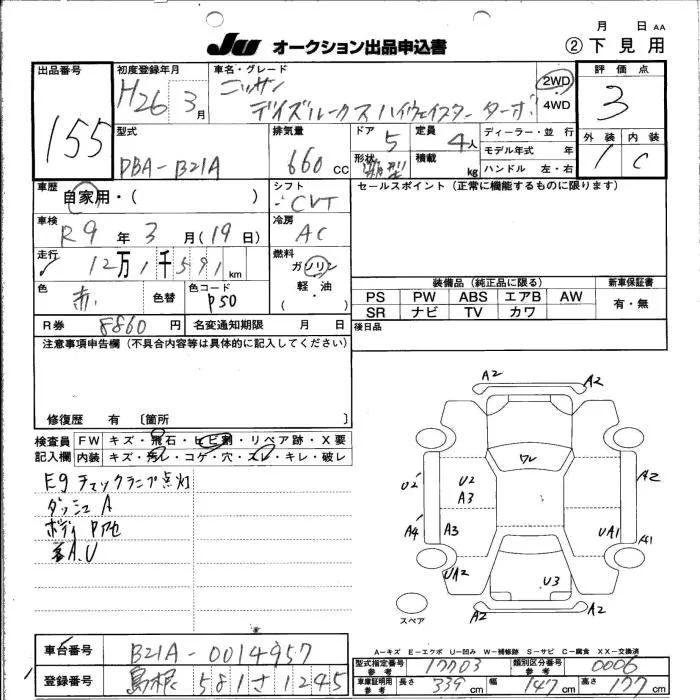 月 日 AA
JU オークション出品申込書 ②下見用
出品番号 155
初度登録年月 H26 3月
車名・グレード ニッサン デイズルークス ハイウェイスター ターボ
2WD 4WD
評価点 3
外装 1 内装 C
型式 DBA-B21A
排気量 660cc
ドア 5
形状 箱型
定員 4人
積載 kg
ディーラー・並行
モデル年式 年
ハンドル 左・右
車歴 自家用・( )
シフト CVT
セールスポイント(正常に機能するものに限ります)
車検 R9年3月(19日)
冷房 AC
走行 12万1千591km
燃料 ガソリン 軽・油 ( )
色 赤 色替
色コード P50
装備品(純正品に限る)
新車保証書 有・無
PS PW ABS エアB AW
SR ナビ TV カワ
R券 8860円 名変通知期限 月 日
後日品
注意事項申告欄(不具合内容等は具体的に記入してください)
修復歴 有 〔箇所 〕
検査員記入欄
FW キズ・飛石・ヒビ割・リペア跡・X要
内装 キズ・汚レ・コゲ・穴・スレ・キレ・破レ
Eg チェックランプ点灯
ダッシュ A
ボディ
A.U
A2 A2
ワレ
U2 U2 A3 A2
A4 A3 UA1 A1
UA2 U3
A2 A2
スペア
A-キズ E-エクボ U-凹み W-補修跡 S-サビ C-腐食 XX-交換済
車台番号 B21A-0014957
登録番号 島根 581 さ 1245
型式指定番号 参考 17703
類別区分番号 参考 0006
車庫証明用 参考 長さ 339cm 幅 147cm 高さ 177cm